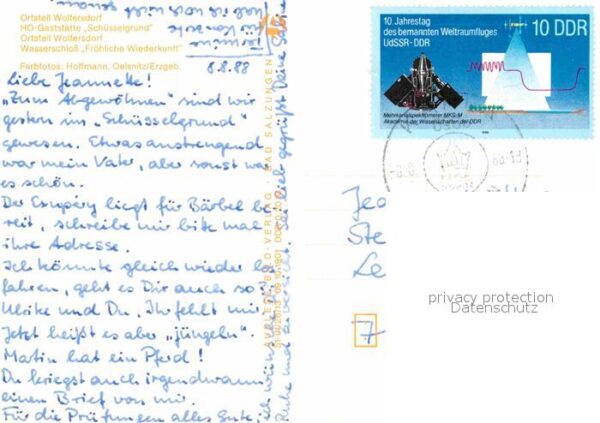 Ortsteil Wolfersdorf
HO-Gaststätte „Schüsselgrund"
Ortsteil Wolfersdorf
Wasserschloß „Fröhliche Wiederkunft"
Farbfotos: Hoffmann, Oelsnitz/Erzgeb.
8.8.88
Liebe Jeannette!
„Zum Abgewöhnen" sind wir
gestern im „Schüsselgrund"
gewesen. Etwas anstrengend
war mein Vater, aber sonst war
es schön.
Der Exupéry liegt für Bärbel be-
reit, schreibe mir bitte mal
ihre Adresse.
Ich könnte gleich wieder los-
fahren, geht es Dir auch so
Ulrike und Du, Ihr fehlt mir
Jetzt heißt es aber „jüngeln".
Martin hat ein Pferd!
Du kriegst auch irgendwann
einen Brief von mir.
Für die Prüfungen alles Gute, ich wünsche
Ruhe und Zuversicht. Sei lieb gegrüßt Deine
BILD-VERLAG BAD SALZUNGEN
10. Jahrestag
des bemannten Weltraumfluges
UdSSR-DDR
10 DDR
Mehrkanalspektrometer MKS-M
Akademie der Wissenschaften der DDR
Jea
Ste
Le
7
privacy protection
Datenschutz